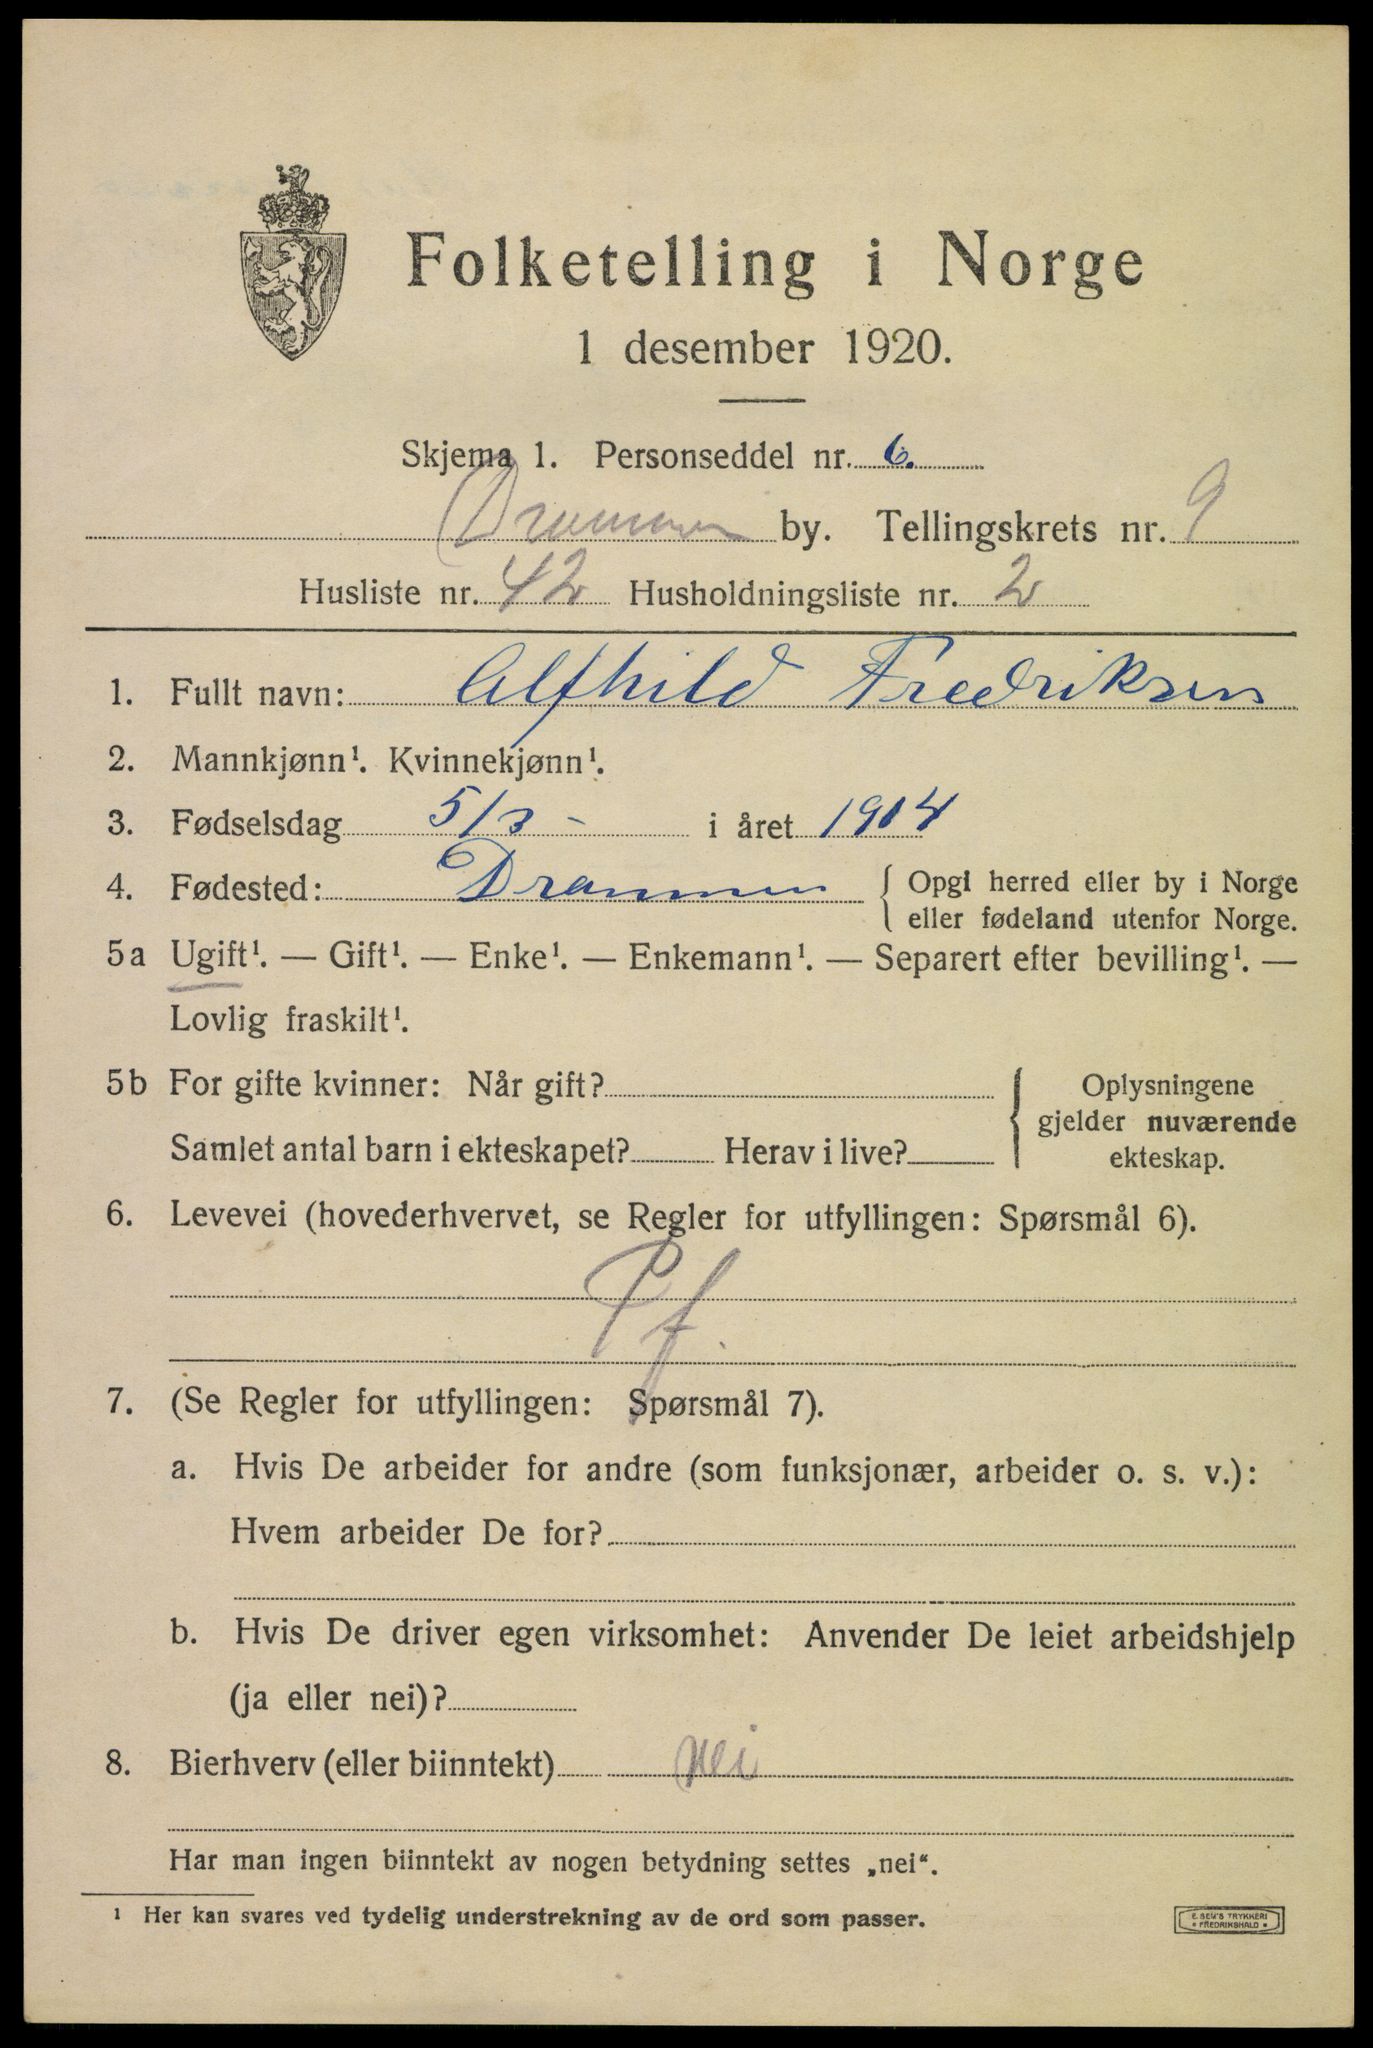 Folketelling i Norge
1 desember 1920.
Skjema 1. Personseddel nr. 6.
Drammen by. Tellingskrets nr. 9
Husliste nr. 42 Husholdningsliste nr. 2
1. Fullt navn: Alfhild Fredriksen
2. Mannkjønn¹. Kvinnekjønn¹.
3. Fødselsdag 5/3 - i året 1904
4. Fødested: Drammen { Opgi herred eller by i Norge
eller fødeland utenfor Norge.
5a Ugift¹. — Gift¹. — Enke¹. — Enkemann¹. — Separert efter bevilling¹. —
Lovlig fraskilt¹.
5b For gifte kvinner: Når gift? { Oplysningene
gjelder nuværende
Samlet antal barn i ekteskapet? Herav i live? ekteskap.
6. Levevei (hovederhvervet, se Regler for utfyllingen: Spørsmål 6).
Pf.
7. (Se Regler for utfyllingen: Spørsmål 7).
a. Hvis De arbeider for andre (som funksjonær, arbeider o. s. v.):
Hvem arbeider De for?
b. Hvis De driver egen virksomhet: Anvender De leiet arbeidshjelp
(ja eller nei)?
8. Bierhverv (eller biinntekt) nei
Har man ingen biinntekt av nogen betydning settes „nei“.
¹ Her kan svares ved tydelig understrekning av de ord som passer.
E. SEM'S TRYKKERI
• FREDRIKSHALD •